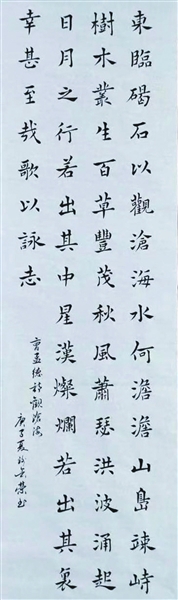 東臨碣石以觀滄海水何澹澹山島竦峙
樹木叢生百草豐茂秋風蕭瑟洪波涌起
日月之行若出其中星漢燦爛若出其裏
幸甚至哉歌以詠志
曹孟德詩觀滄海
庚子夏